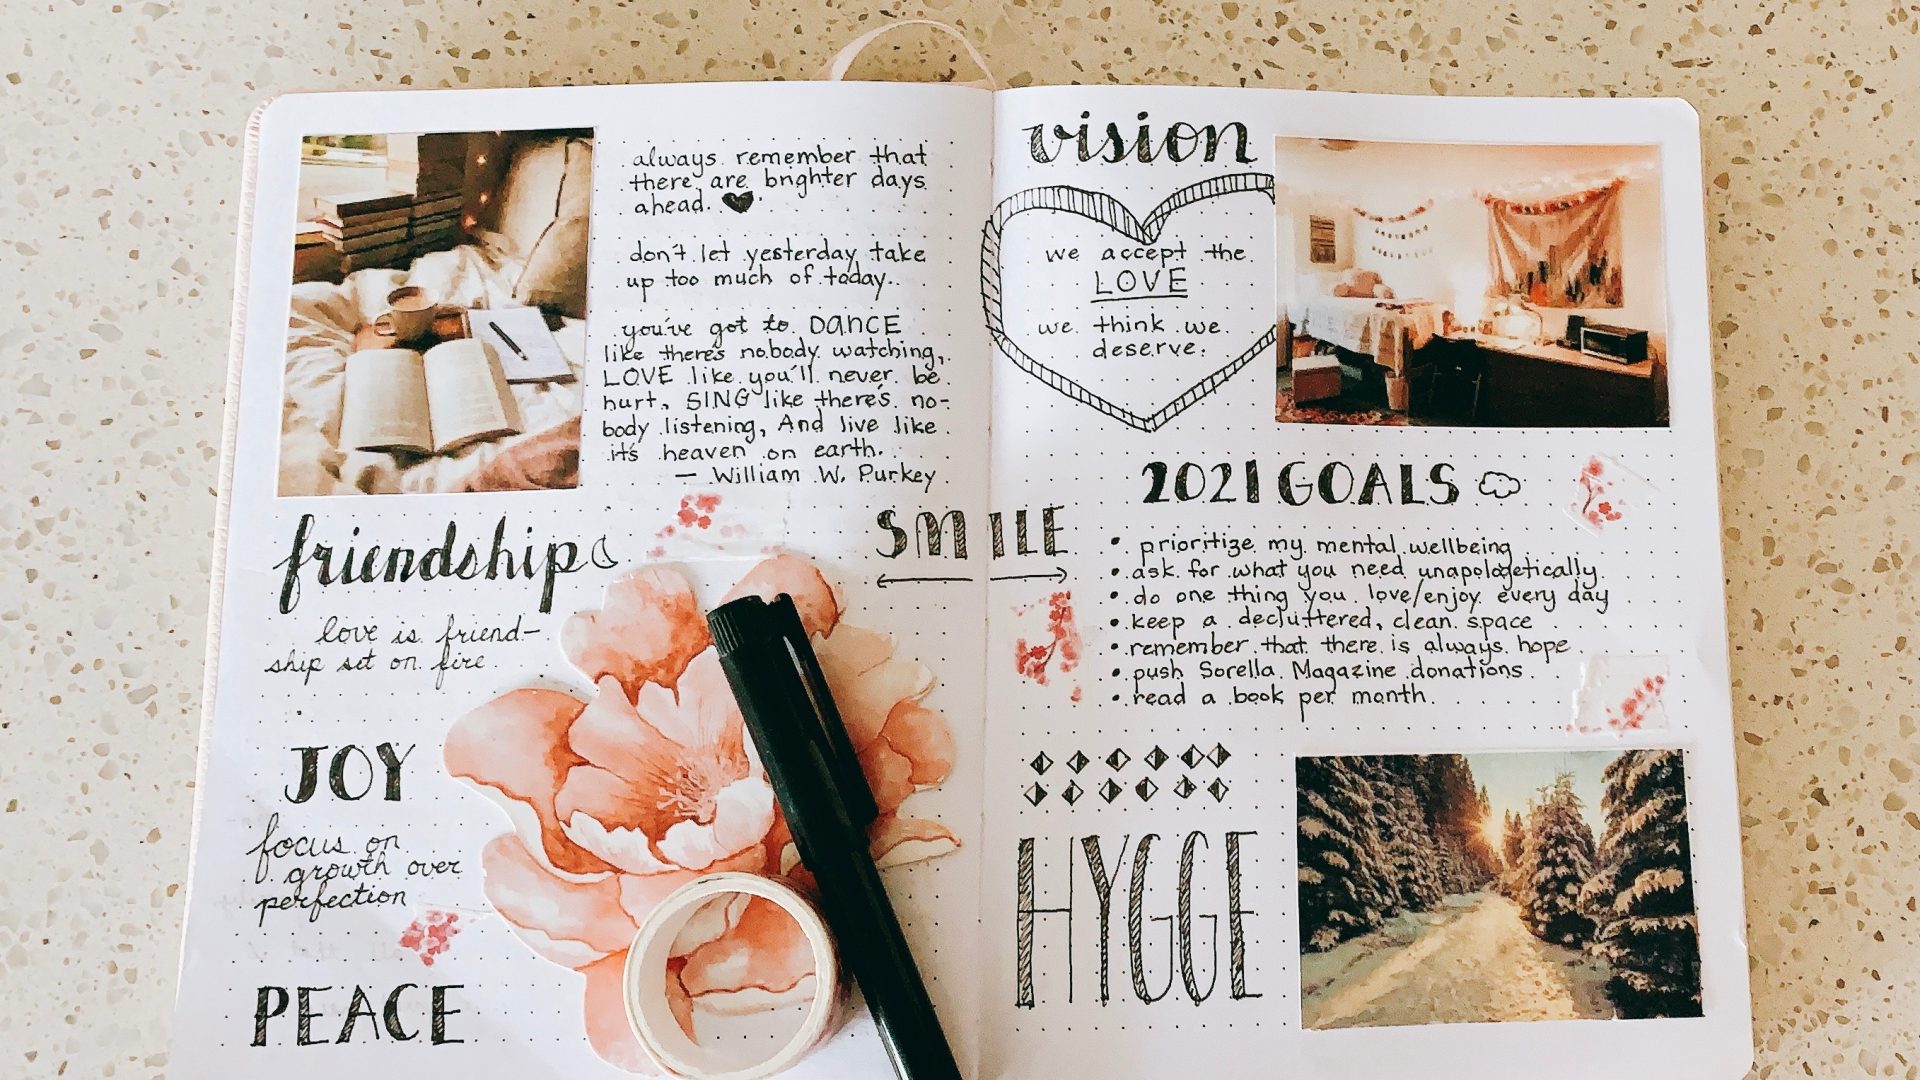 always remember that
there are brighter days
ahead.
don't let yesterday take
up too much of today..
you've got to DANCE
like there's nobody watching,
LOVE like you'll never be
hurt, SING like there's no-
body listening, And live like
it's heaven on earth.
— William W. Purkey
friendship
love is friend-
ship set on fire
JOY
focus on
growth over
perfection
PEACE
SMILE
vision
we accept the
LOVE
we think we
deserve.
2021 GOALS
• prioritize my mental wellbeing
• ask for what you need unapologetically
• do one thing you love/enjoy every day
• keep a decluttered, clean space
• remember that there is always hope
• push Sorella Magazine donations
• read a book per month
HYGGE